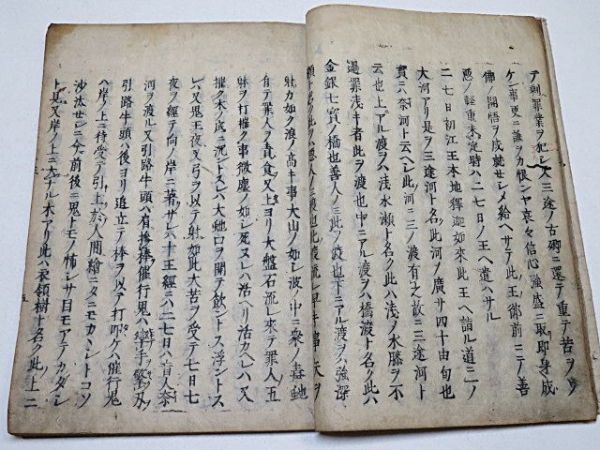 テ重罪業ヲ犯シテ三途ノ古郷ニ還テ重テ苦ヲウ
ケ事更ニ誰ヲカ恨ンヤ哀々信心強盛ニ取即身成
佛ノ開悟ヲ成就セシメ給ヘサテ此王御前ニテノ善
悪ノ軽重未定時ハ二七日ノ王ヘ遣ハサル
二七日初江王本地釋迦如来此王ヘ詣ル道ニノ
大河アリ是ヲ三途河ト名ク此河ノ廣サ四十由旬也
實ニハ奈河ト云ヘシ此河ニ三ノ渡有之故ニ三途河ト
云也上ニアル渡ヲハ浅水瀬ト名ク此ハ浅ノ水勝ヲ不
過罪浅キ者此ヲ渡也中ニアル渡ヲハ橋渡ト名ク此ハ
金銀七寳ノ橋也善人ノミ此ヲ渡也下ニアル渡ヲハ強深
瀬ト名ク此ヲハ悪人ノミ渡也此渡流レ早キ事矢ヲ
射カ如ク浪ノ高キ事大山ノ如シ波ノ中ニ衆ノ毒虵
有テ罪人ヲ責食又上ヨリ大盤石流レ来テ罪人五
躰ヲ打摧ク事微塵ノ如シ死スレハ活ヘリ活カヘレハ又
摧ク水ノ底ニ沈ントスレハ大虵口ヲ開テ飲ントス浮ントス
レハ又鬼王夜叉弓ヲ以テ射如此大苦ヲ受テ七日七
夜ヲ經テ向ノ岸ニ著サレハ十王經ニハ二七日ハ亡人奈
河ヲ渡ル又引路牛頭ハ有捧棒催行鬼
引路牛頭ハ後ヨリ追立テノ棒ヲ以テ打叩ケハ催行鬼
ハ岸ノ上ニ待受テ引上於人間給ニタニモカヽレントコソ
沙汰セシニ今前後ニ鬼トモノ怖シサ目モアテラレタレ
ト見又岸ノ上ニ大ナル木アリ此ハ衣領樹ト名ク此上ニ